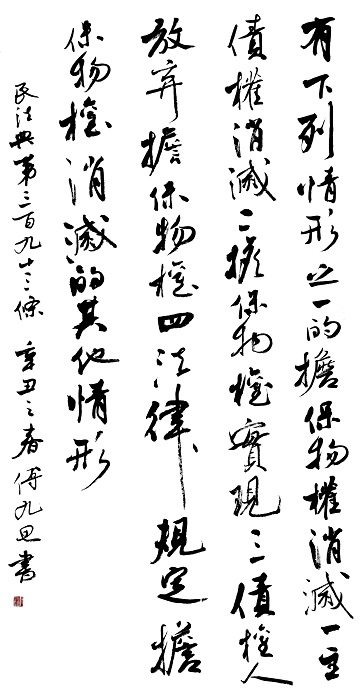 有下列情形之一的擔保物權消滅一主
債權消滅二擔保物權實現三債權人
放弃擔保物權四法律規定擔
保物權消滅的其他情形
民法典第三百九十三條 辛丑之春 傅九思書